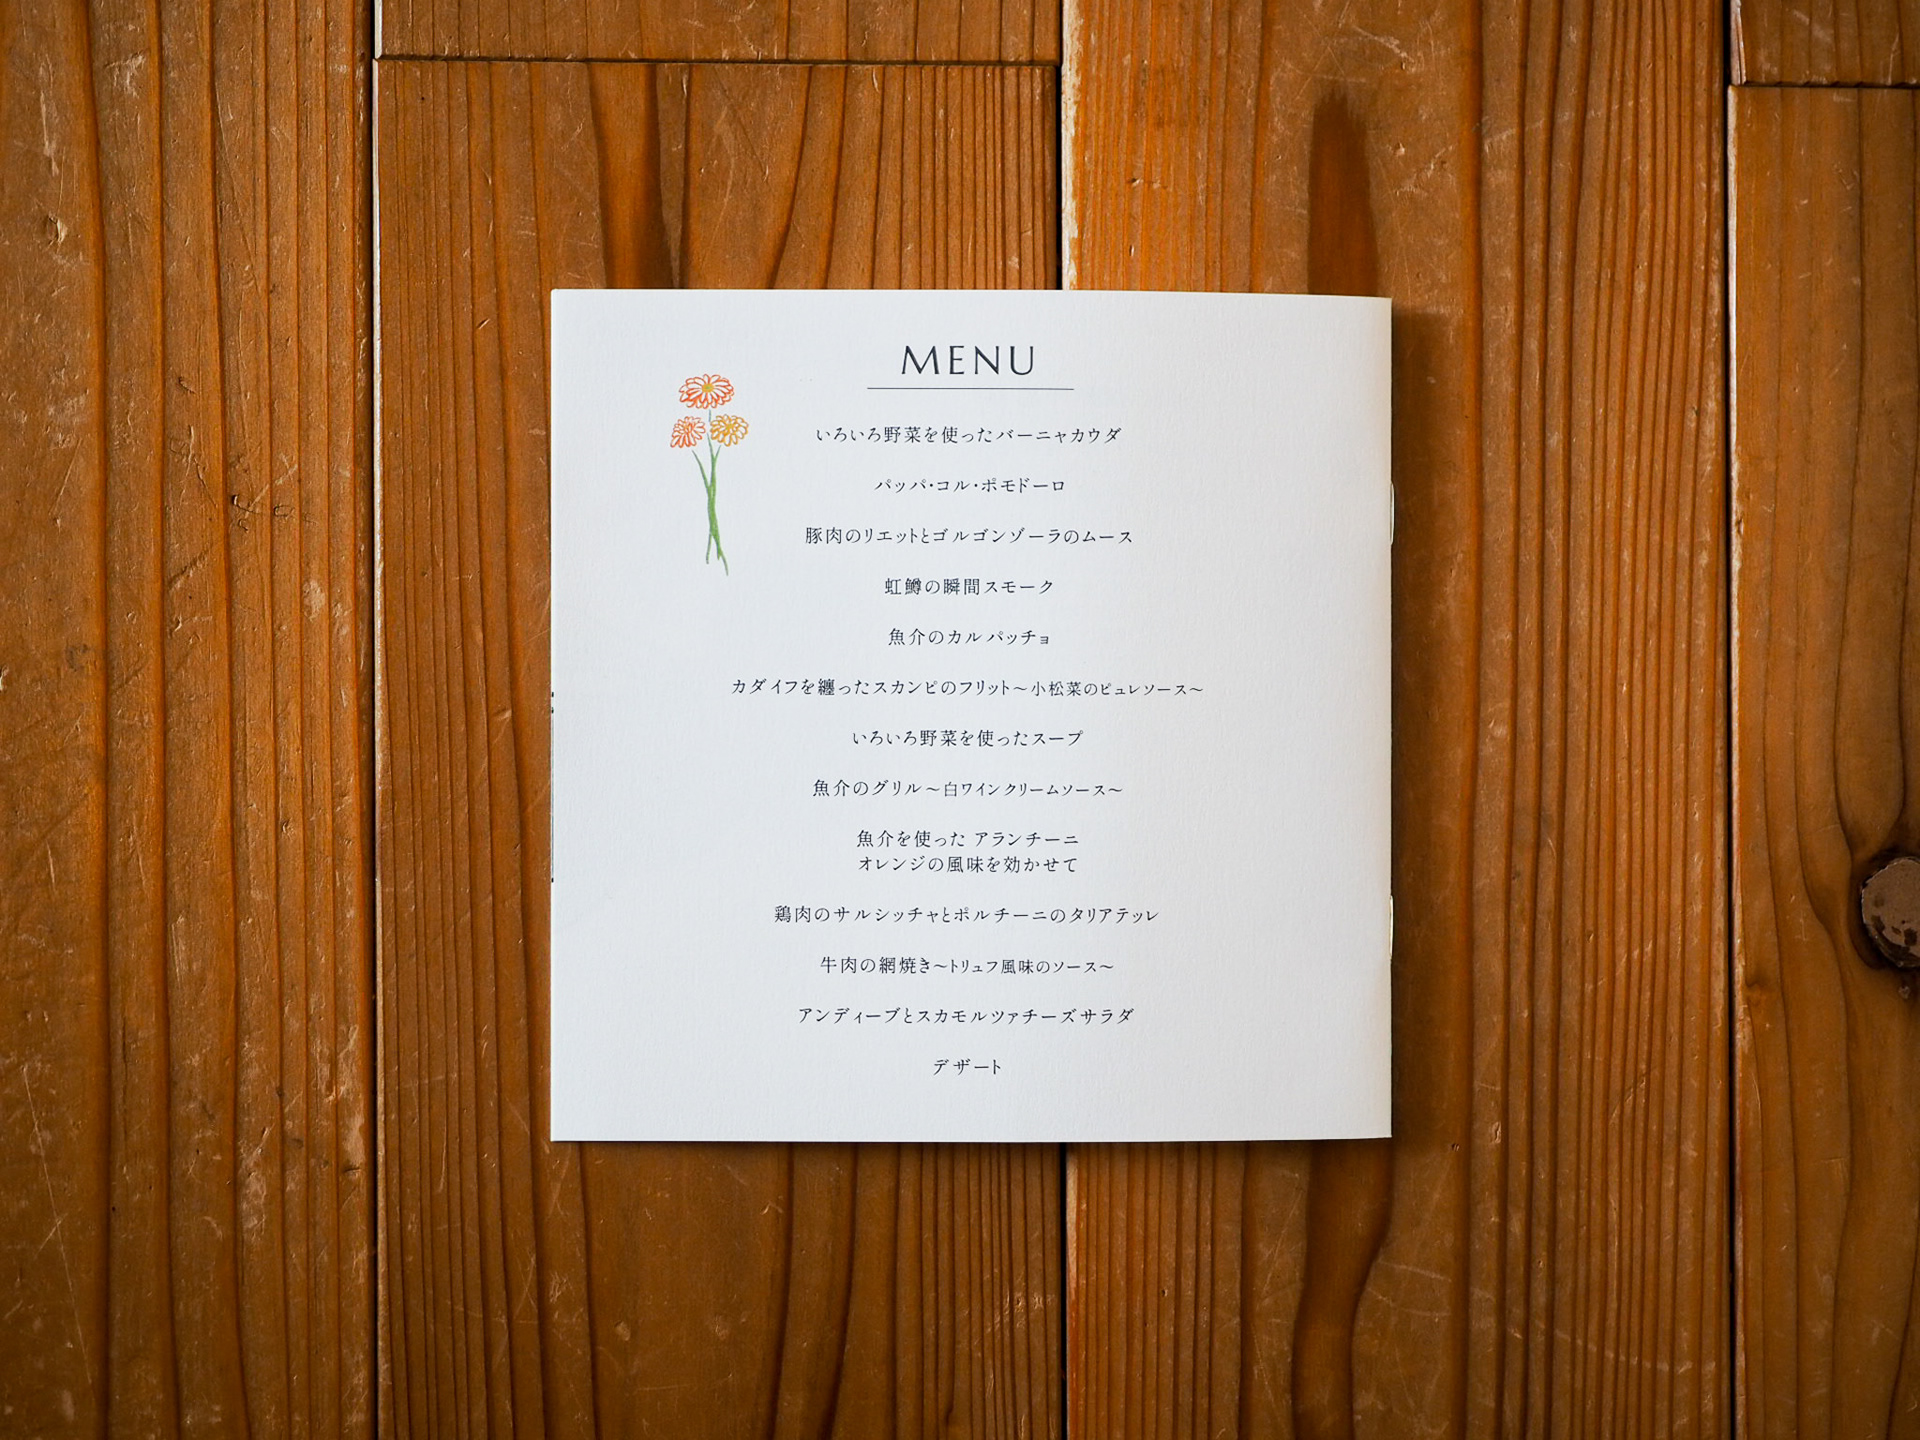 MENU
いろいろ野菜を使ったバーニャカウダ
パッパ・コル・ポモドーロ
豚肉のリエットとゴルゴンゾーラのムース
虹鱒の瞬間スモーク
魚介のカルパッチョ
カダイフを纏ったスカンピのフリット～小松菜のピュレソース～
いろいろ野菜を使ったスープ
魚介のグリル～白ワインクリームソース～
魚介を使った アランチーニ
オレンジの風味を効かせて
鶏肉のサルシッチャとポルチーニのタリアテッレ
牛肉の網焼き～トリュフ風味のソース～
アンディーブとスカモルツァチーズサラダ
デザート